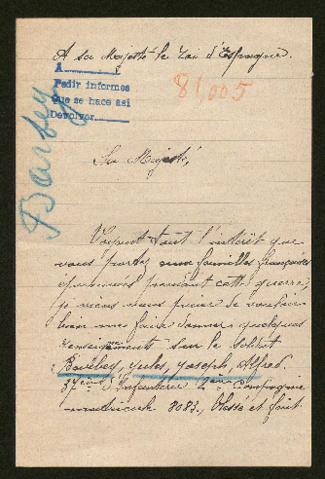 A sa Majesté le Roi d'Espagne.
A
Pedir informes
Que se hace así
Devolver
81,005
Sa Majesté,
Voyant tout l'intérêt que
vous portez aux familles françaises
éprouvées pendant cette guerre,
je viens vous prier de vouloir
bien me faire donner quelques
renseignements sur le soldat
Jules, Joseph, Alfred.
37ème d'Infanterie Compagnie
matricule 8083, blessé et fait